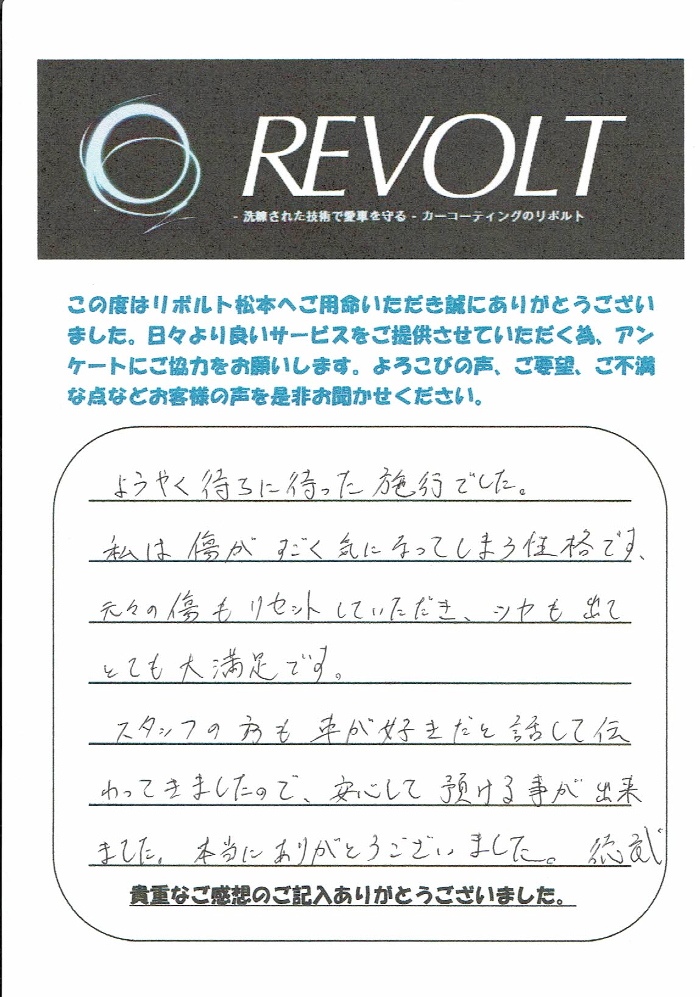 REVOLT
- 洗練された技術で愛車を守る - カーコーティングのリボルト
この度はリボルト松本へご用命いただき誠にありがとうござい
ました。日々より良いサービスをご提供させていただく為、アン
ケートにご協力をお願いします。よろこびの声、ご要望、ご不満
な点などお客様の声を是非お聞かせください。
ようやく待ちに待った施行でした。
私は傷がすごく気になってしまう性格です、
元々の傷もリセットしていただき、ツヤも出て
とても大満足です。
スタッフの方も車が好きだと話して伝
わってきましたので、安心して預ける事が出来
ました。本当にありがとうございました。 徳武
貴重なご感想のご記入ありがとうございました。